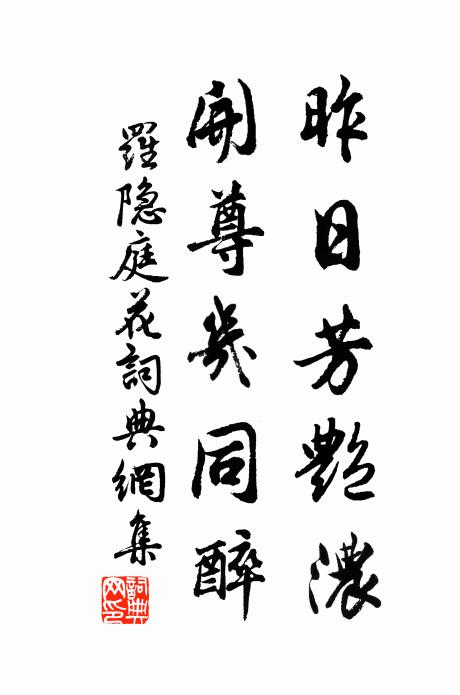 昨日芳艷濃
開尊幾同醉
羅隐庭花詞典網集
詞典網印